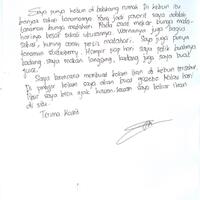 Saya punya kebun di belakang rumah. Di kebun itu
banyak sekali tanamannya. Yang jadi favorit saya adalah
tanaman bunga matahari. Pada saat mekar bunga mata-
harinya besar sekali ukurannya. Warnanya juga bagus
sekali, kuning cerah seperti matahari. Saya juga punya
tanaman strawberry. Hampir tiap hari saya petik buahnya
kadang saya makan langsung, kadang juga saya buat
juice.
Saya berencana membuat kolam ikan di kebun tersebut.
Di pinggir kolam saya akan buat gazebo kalau hari
libur saya bisa ajak kawan-kawan saya bakar ikan
di situ.
Terima kasih